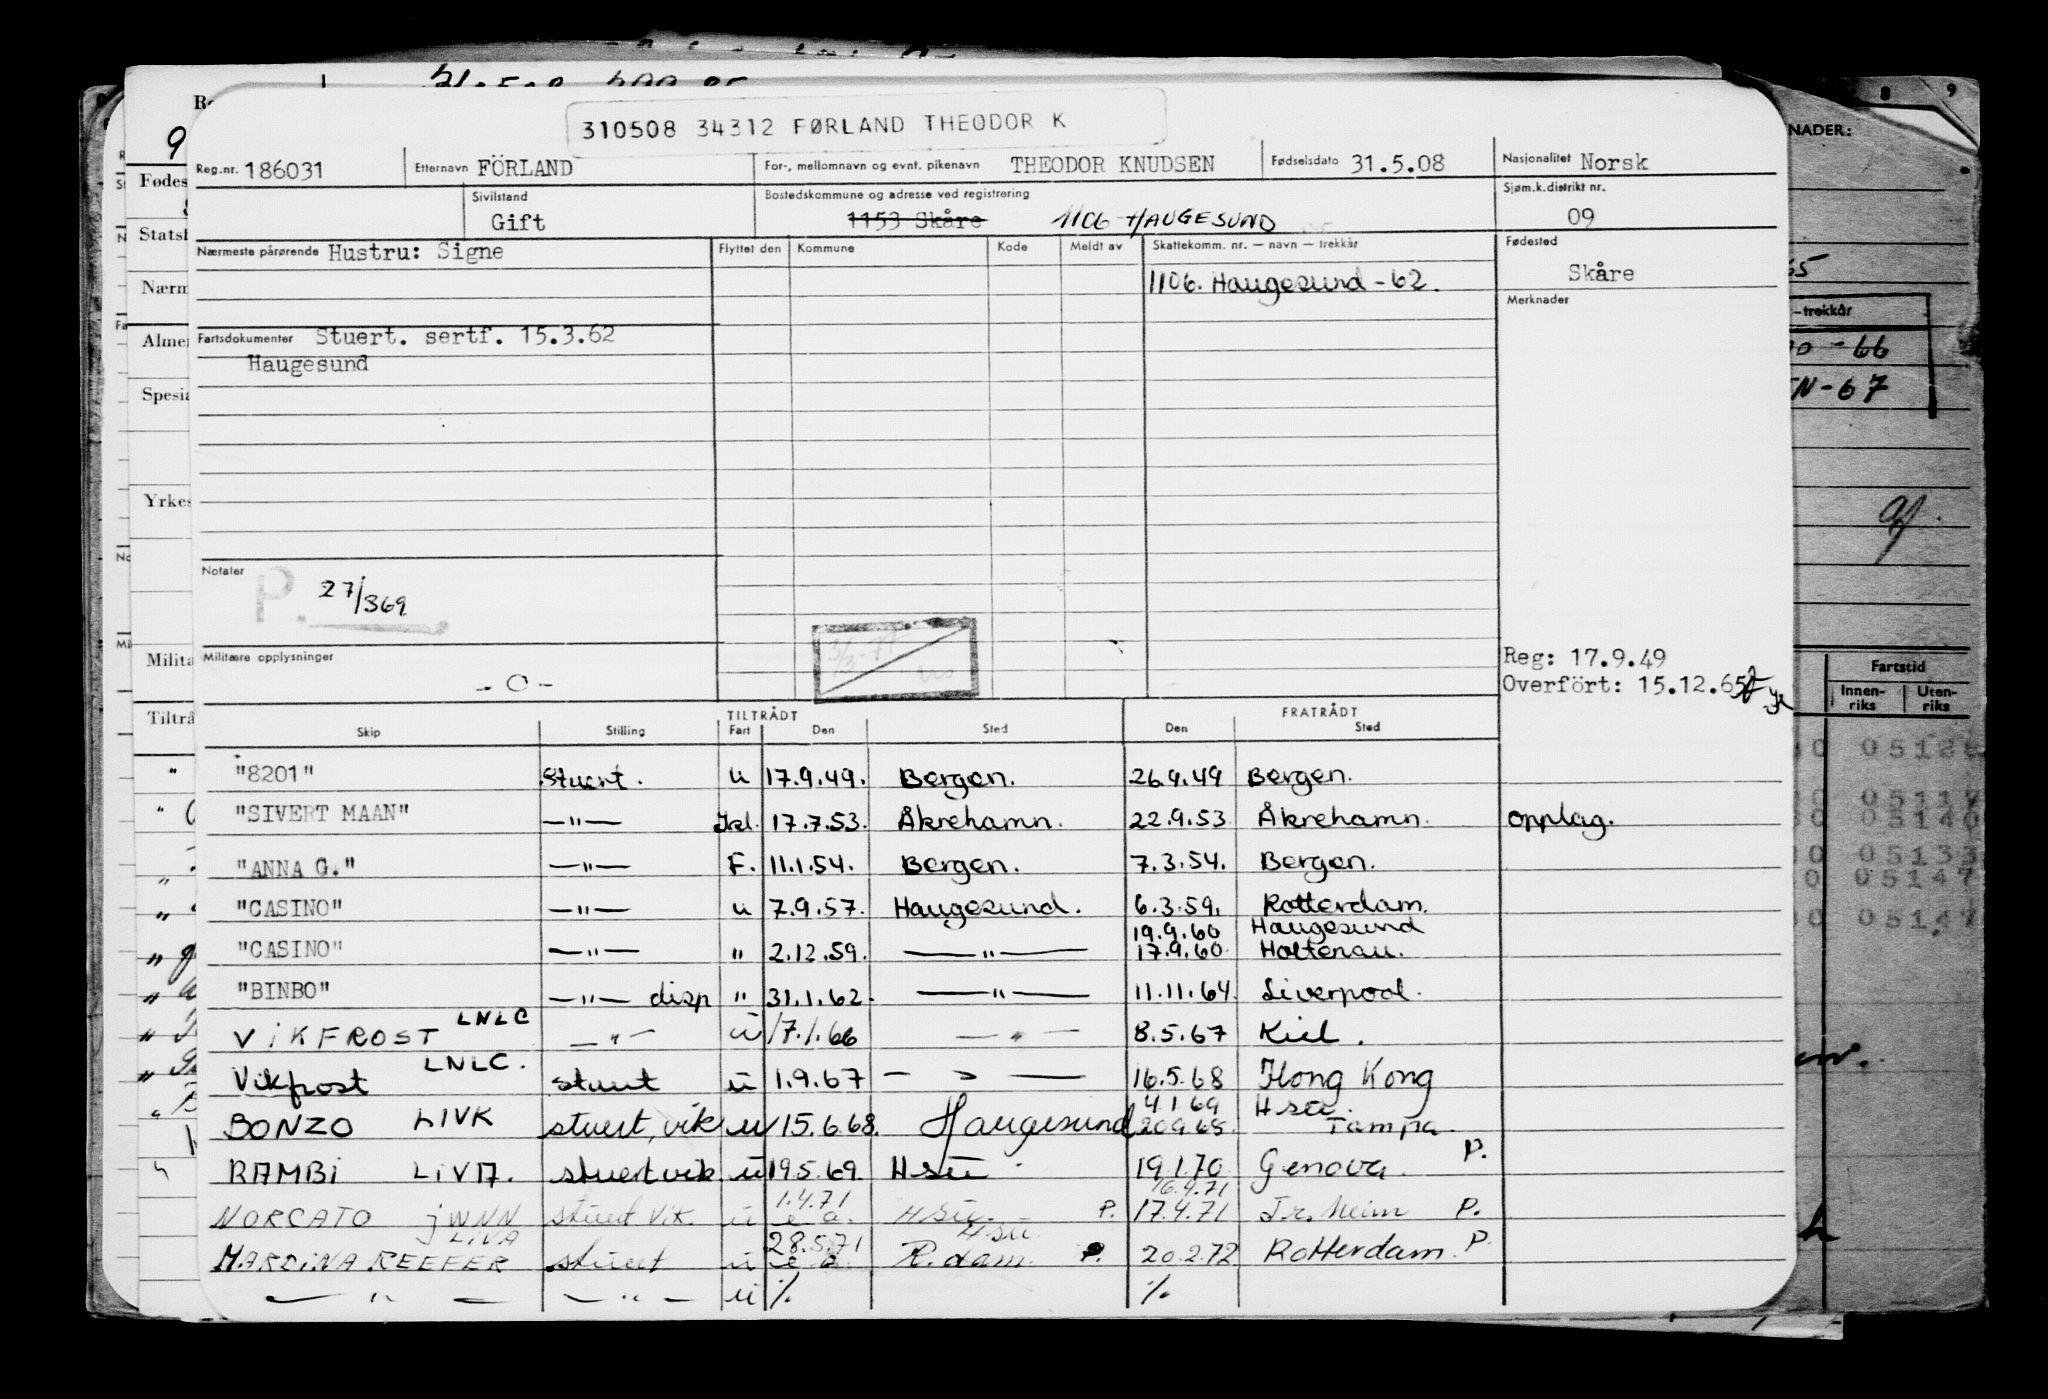 310508 34312 FØRLAND THEODOR K
Reg.nr. 186031 Etternavn FÖRLAND For-, mellomnavn og evnt. pikenavn THEODOR KNUDSEN Fødselsdato 31.5.08 Nasjonalitet Norsk
Sivilstand Gift Bostedskommune og adresse ved registrering 1153 Skåre 1106 HAUGESUND Sjøm.k.distrikt nr. 09
Nærmeste pårørende Hustru: Signe Flyttet den Kommune Kode Meldt av Skattekomm. nr. — navn — trekkår Fødested
1106. Haugesund - 62. Skåre
Merknader
Fartsdokumenter Stuert. sertf. 15.3.62
Haugesund
Notater P. 27/369
Militære opplysninger
- O -
Reg: 17.9.49
Overfört: 15.12.65
TILTRÅDT FRATRÅDT
Skip Stilling Fart Den Sted Den Sted
"8201" Stuert. u 17.9.49. Bergen. 26.9.49 Bergen.
"SIVERT MAAN" —"— Ikl. 17.7.53. Åkrehamn. 22.9.53. Åkrehamn. Opplag.
"ANNA G." —"— F. 11.1.54. Bergen. 7.3.54. Bergen.
"CASINO" —"— u 7.9.57. Haugesund. 6.3.59. Rotterdam.
19.9.60 Haugesund
"CASINO" —"— " 2.12.59. —"— 17.9.60. Holtenau.
"BINBO" —"— disp " 31.1.62. —"— 11.11.64. Liverpool.
VIKFROST LNLC —"— u 17.1.66 —"— 8.5.67 Kiel.
Vikfrost LNLC. stuert u 1.9.67 — " — 16.5.68 Hong Kong
4.1.69 Hsu.
BONZO LIVK stuert, vik u 15.6.68. Haugesund 20.9.68. Tampa
RAMBI LIVA. stuert vik u 19.5.69. Hsu 19.1.70 Genova. P.
1.4.71 16.4.71
NORCATO JWNN stuert vik. u e a. Hsu. P. 17.4.71 Tr.heim P.
LIVA 28.5.71 Hsu.
MARDINA REEFER stuert u e a. R.dam P. 20.2.72 Rotterdam. P.
— " — — " — u %. %.
NADER:
-trekkår
- 66
- 67
Fartstid
Innen-riks Uten-riks